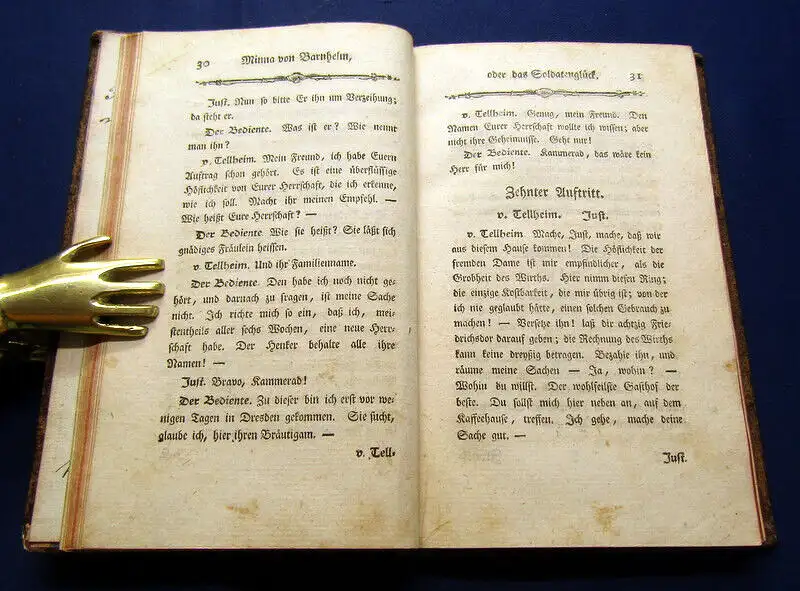 30 Minna von Barnhelm,
Just. Nun so bitte Er ihn um Verzeihung;
da steht er.
Der Bediente. Was ist er? Wie nennt
man ihn?
v. Tellheim. Mein Freund, ich habe Euern
Auftrag schon gehört. Es ist eine überflüssige
Höflichkeit von Eurer Herrschaft, die ich erkenne,
wie ich soll. Macht ihr meinen Empfehl. —
Wie heißt Eure Herrschaft? —
Der Bediente. Wie sie heißt? Sie läßt sich
gnädiges Fräulein heissen.
v. Tellheim. Und ihr Familienname.
Der Bediente. Den habe ich noch nicht ge-
hört, und darnach zu fragen, ist meine Sache
nicht. Ich richte mich so ein, daß ich, mei-
stentheils aller sechs Wochen, eine neue Herr-
schaft habe. Der Henker behalte alle ihre
Namen! —
Just. Bravo, Kammerad!
Der Bediente. Zu dieser bin ich erst vor we-
nigen Tagen in Dresden gekommen. Sie sucht,
glaube ich, hier ihren Bräutigam. —
v. Tell-
oder das Soldatenglück. 31
v. Tellheim. Genug, mein Freund. Den
Namen Eurer Herrschaft wollte ich wissen; aber
nicht ihre Geheimnisse. Geht nur!
Der Bediente. Kammerad, das wäre kein
Herr für mich!
Zehnter Auftritt.
v. Tellheim. Just.
v. Tellheim Mache, Just, mache, daß wir
aus diesem Hause kommen! Die Höflichkeit der
fremden Dame ist mir empfindlicher, als die
Grobheit des Wirths. Hier nimm diesen Ring;
die einzige Kostbarkeit, die mir übrig ist; von der
ich nie geglaubt hätte, einen solchen Gebrauch zu
machen! — Versetze ihn! laß dir achtzig Frie-
drichsdor darauf geben; die Rechnung des Wirths
kann keine dreyßig betragen. Bezahle ihn, und
räume meine Sachen — Ja, wohin? —
Wohin du willst. Der wohlfeilste Gasthof der
beste. Du sollst mich hier neben an, auf dem
Kaffeehause, treffen. Ich gehe, mache deine
Sache gut. —
Just.